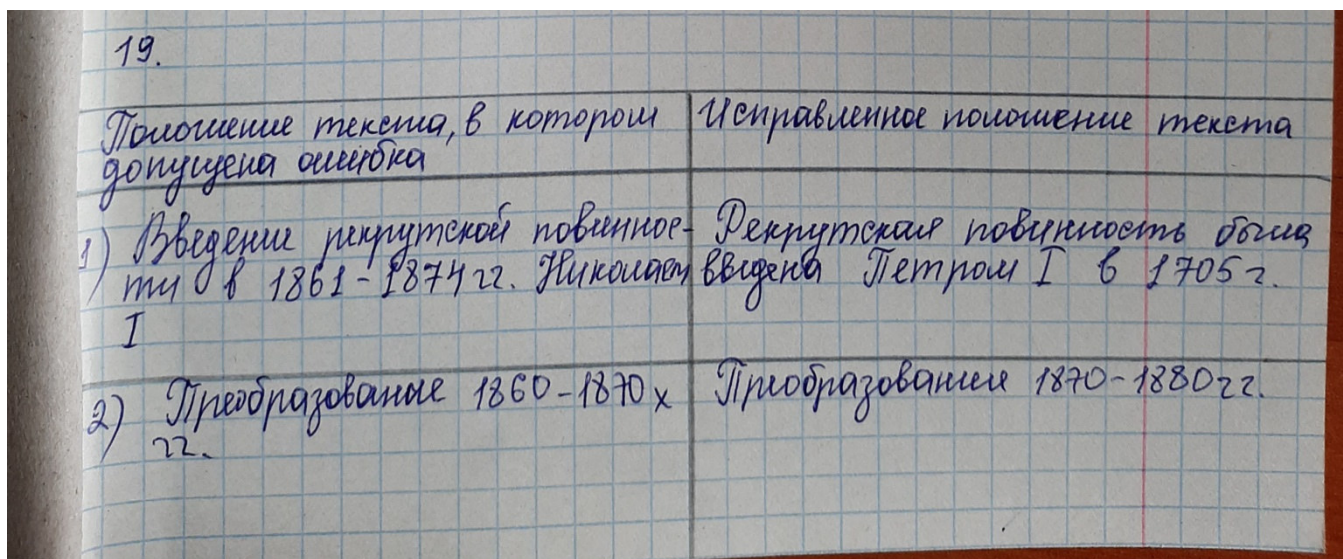 19.
Положение текста, в котором
допущена ошибка
Исправленное положение текста
1) Введение рекрутской повиннос-
ти в 1861-1874 гг. Николаем
I
Рекрутская повинность была
введена Петром I в 1705 г.
2) Преобразование 1860-1870х
гг.
Преобразования 1870-1880 гг.